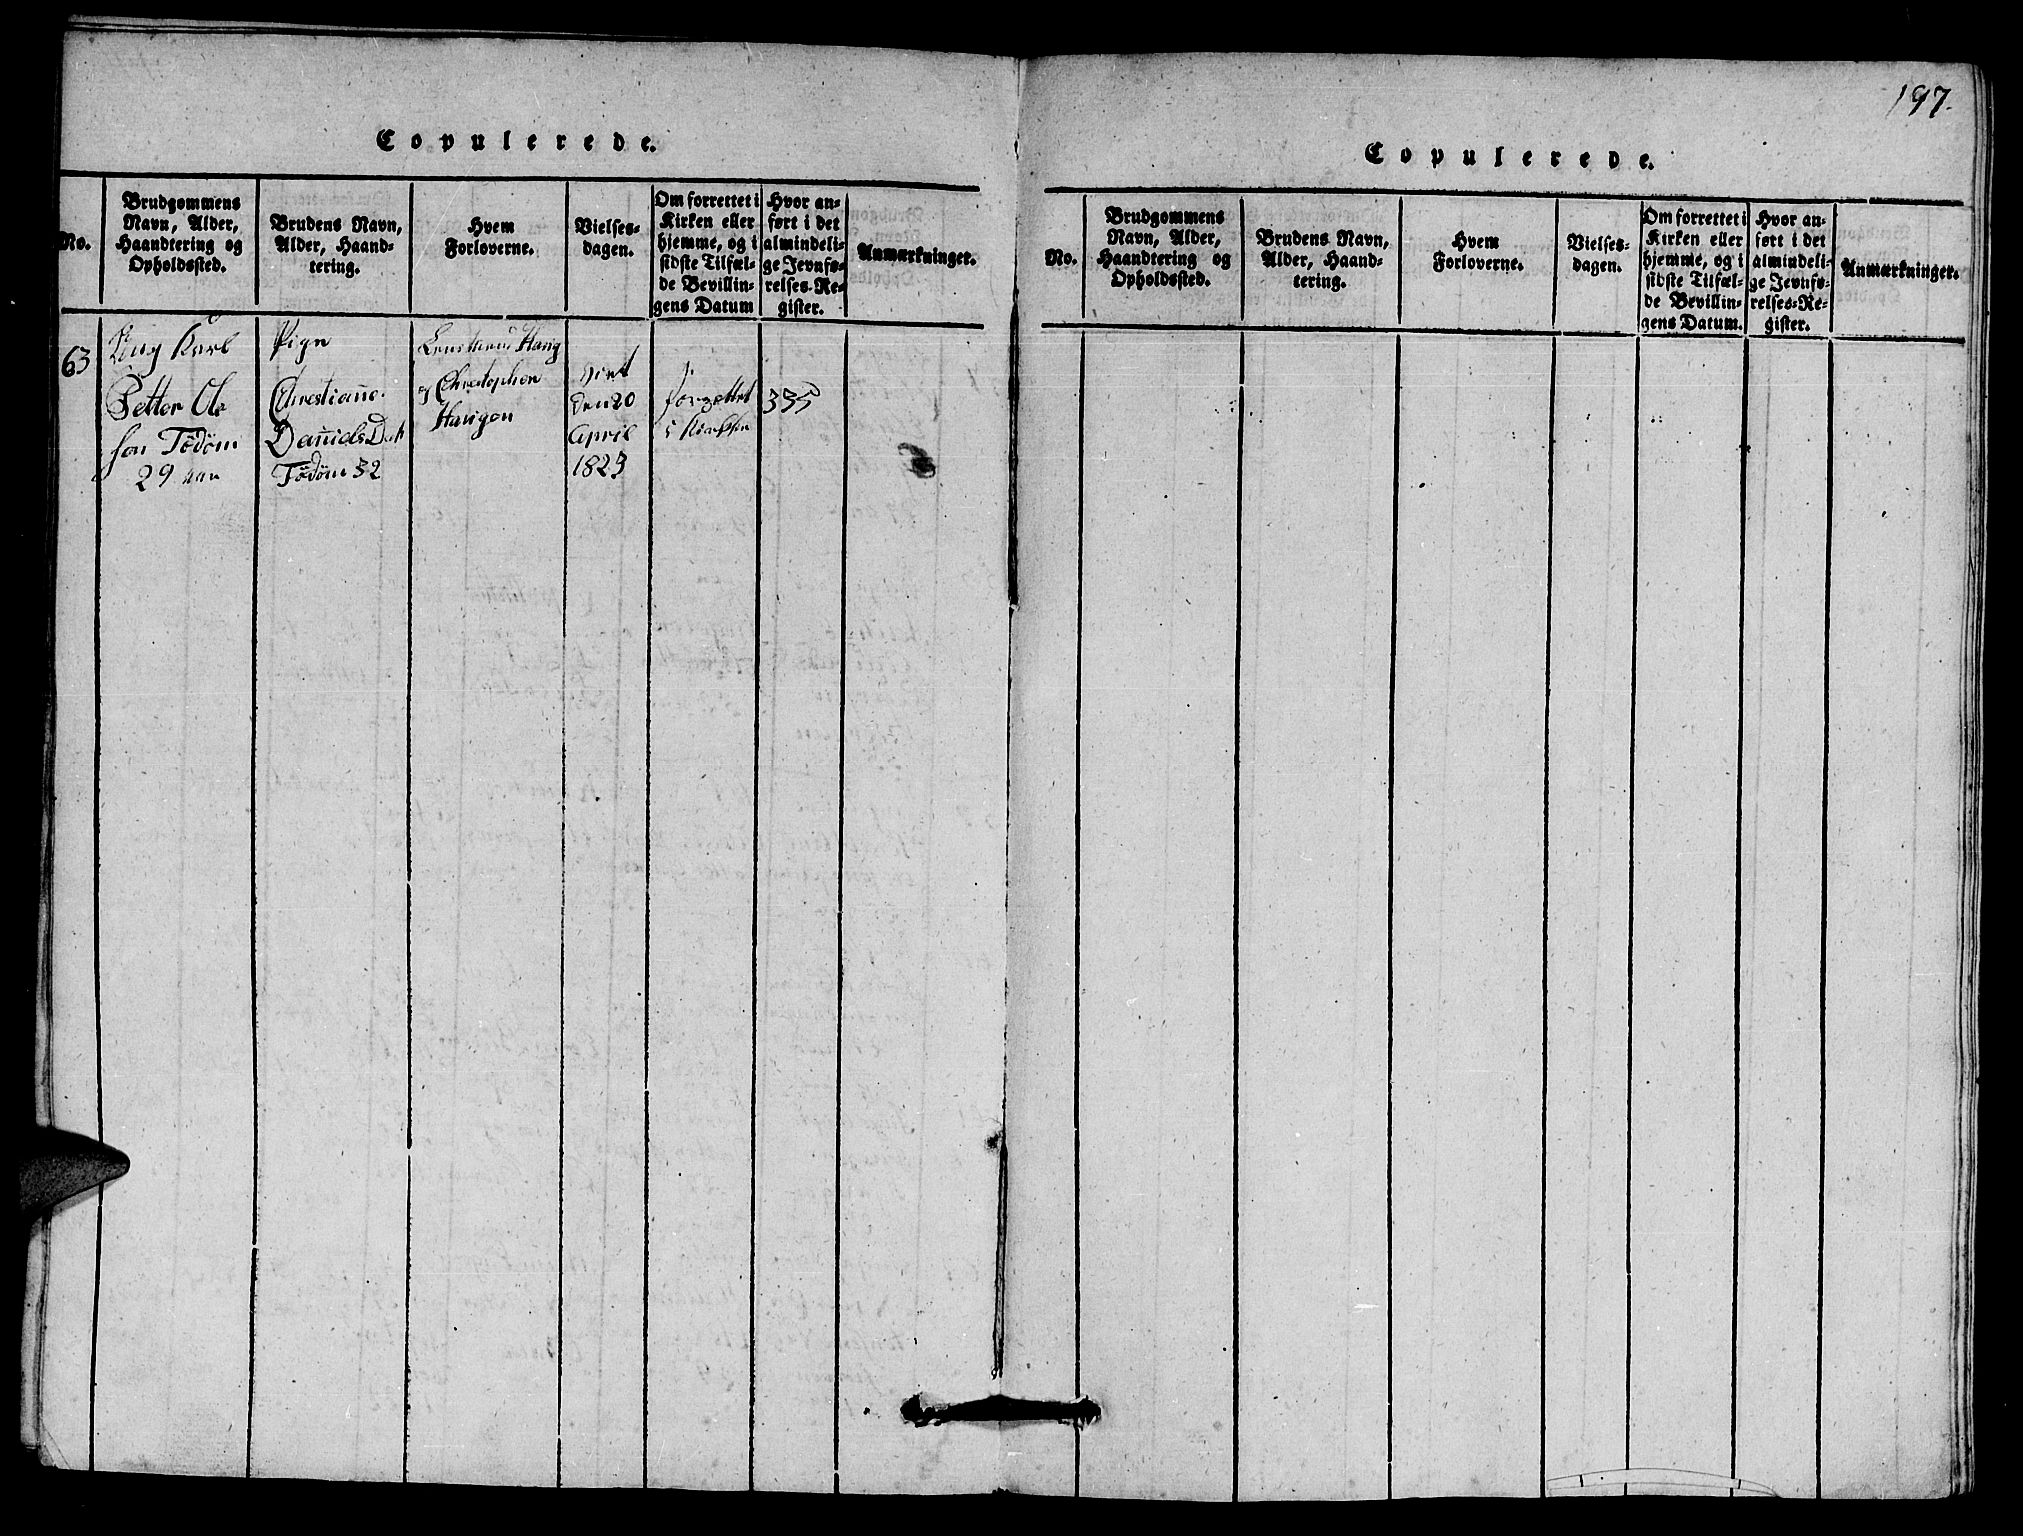 197.
Copulerede.
No.
Brudgommens
Navn, Alder,
Haandtering og
Opholdssted.
Brudens Navn,
Alder, Haand-
tering.
Hvem
Forloverne.
Vielses-
dagen.
Om forrettet i
Kirken eller
hjemme, og i
sidste Tilfæl-
de Bevillin-
gens Datum
Hvor an-
ført i det
almindeli-
ge Jevnfø-
relses-Re-
gister.
Anmærkninger.
63
Ung Karl
Petter Ole
sen Tødøm
29 aar
Pige
Chrestiane
Daniels Dat
Tødøm 32
Haug
og Chrestopher
Haugen
Viet
den 20
April
1823
forrettet
i Kirken
335
Copulerede.
No.
Brudgommens
Navn, Alder,
Haandtering og
Opholdssted.
Brudens Navn,
Alder, Haand-
tering.
Hvem
Forloverne.
Vielses-
dagen.
Om forrettet i
Kirken eller
hjemme, og i
sidste Tilfæl-
de Bevillin-
gens Datum.
Hvor an-
ført i det
almindeli-
ge Jevnfø-
relses-Re-
gister.
Anmærkninger.